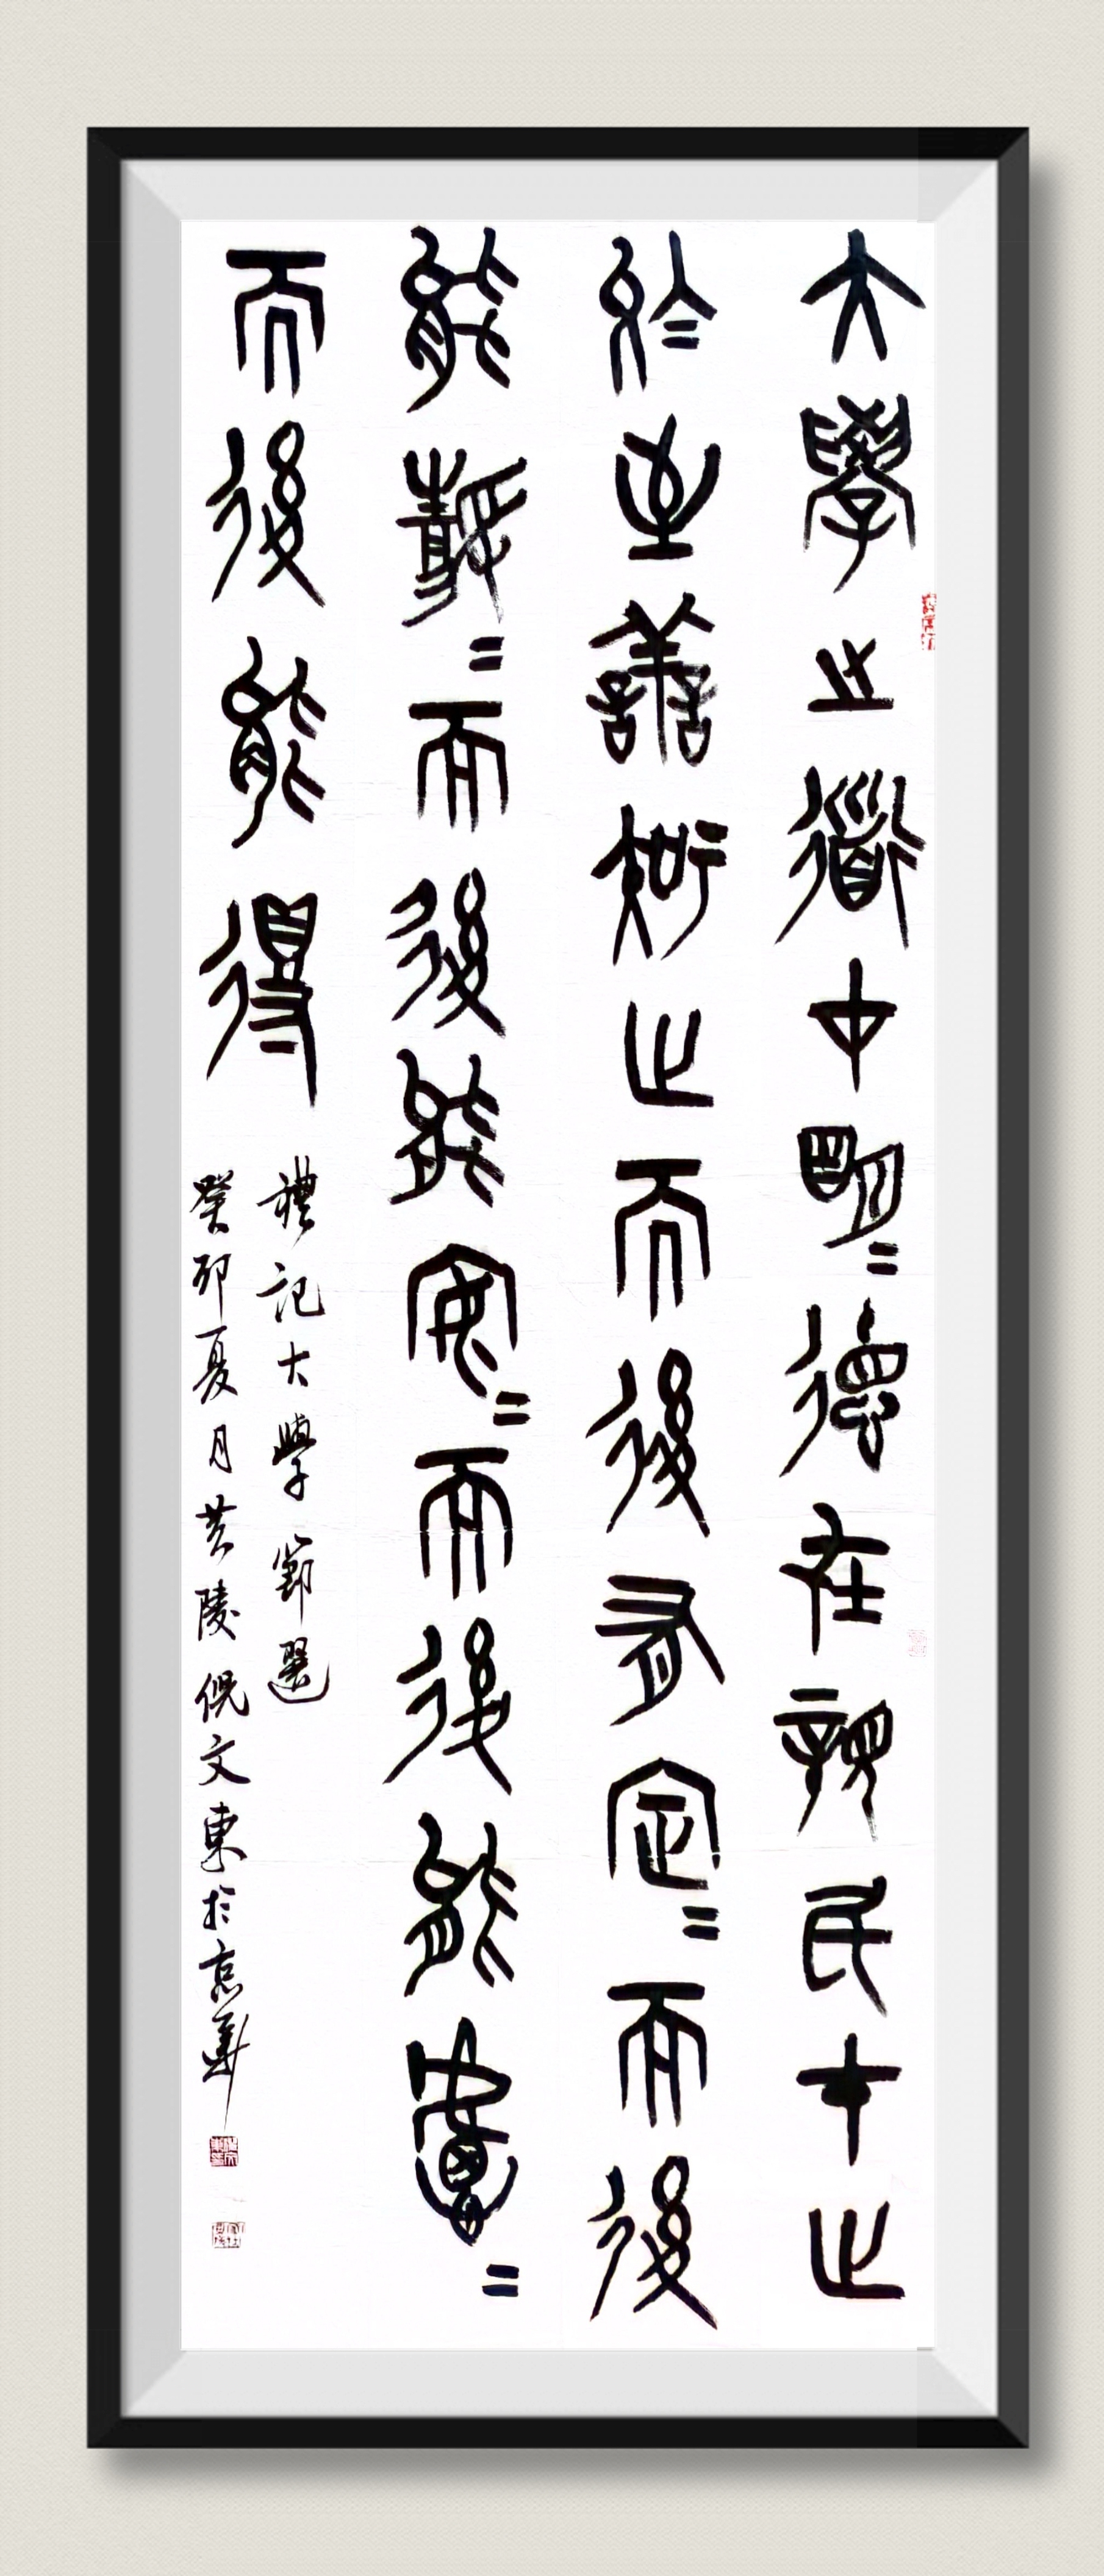 大學之道在明=德在親民在止
於至善知止而後有定=而後
能靜=而後能安=而後能慮=
而後能得
禮記大學節選
癸卯夏月黄陵倪文東於京華